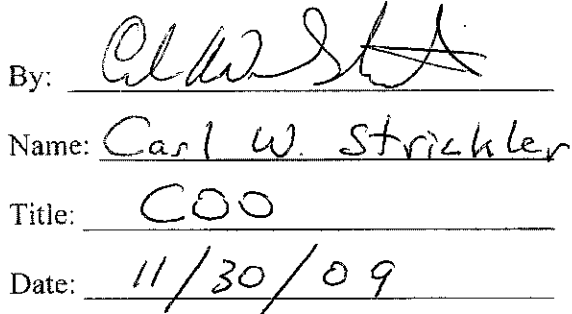 By:
Name: Carl W. Strickler
Title: COO
Date: 11/30/09